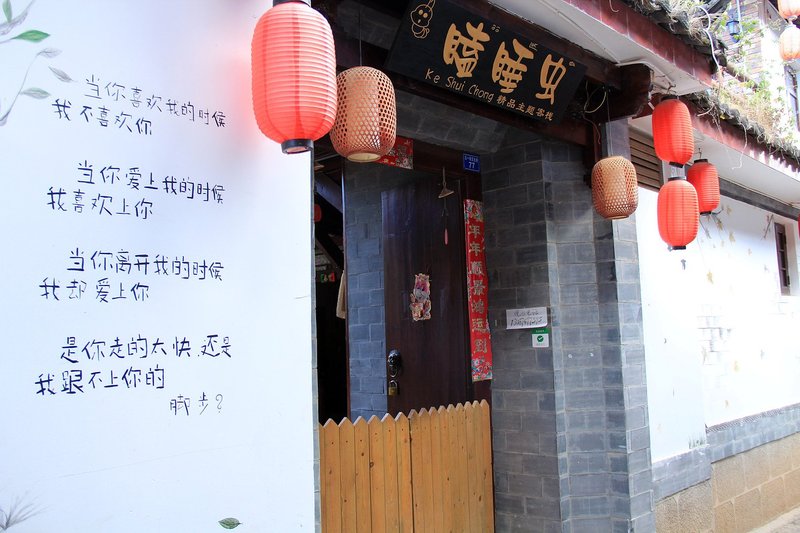 当你喜欢我的时候
我不喜欢你
当你爱上我的时候
我喜欢上你
当你离开我的时候
我却爱上你
是你走的太快,还是
我跟不上你的
脚步?
瞌睡虫
Ke Shui Chong 精品主题客栈
77